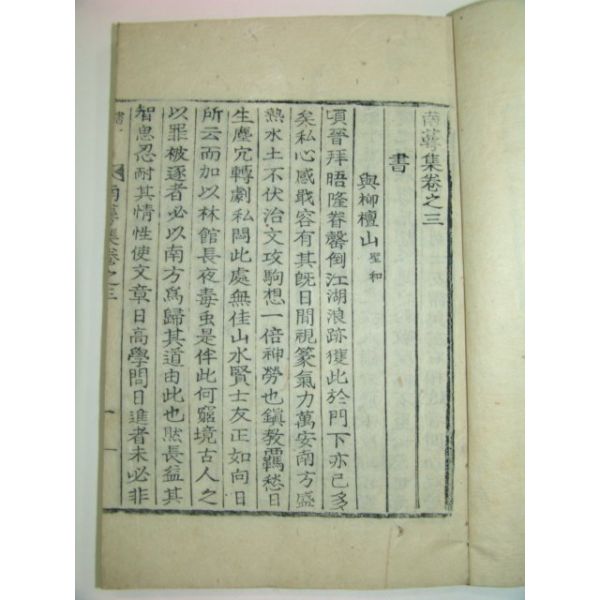 南蓴集卷之三
書
與柳檀山 聖和
頃晉拜晤隆眷罄倒江湖浪跡獲此於門下亦已多
矣私心感戢容有其旣日間視篆氣力萬安南方盛
熱水土不伏治文攻駒想一倍神勞也鎭教覊愁日
生塵宂轉劇私悶此處無佳山水賢士友正如向日
所云而加以林館長夜毒䖝是伴此何窮境古人之
以罪被逐者必以南方爲歸其道由此也然長益其
智思忍耐其情性使文章日高學問日進者未必非
南蓴集卷之三